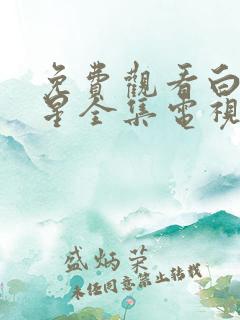 免費觀看白
星全集電視
盛炳荣
未经同意禁止转载